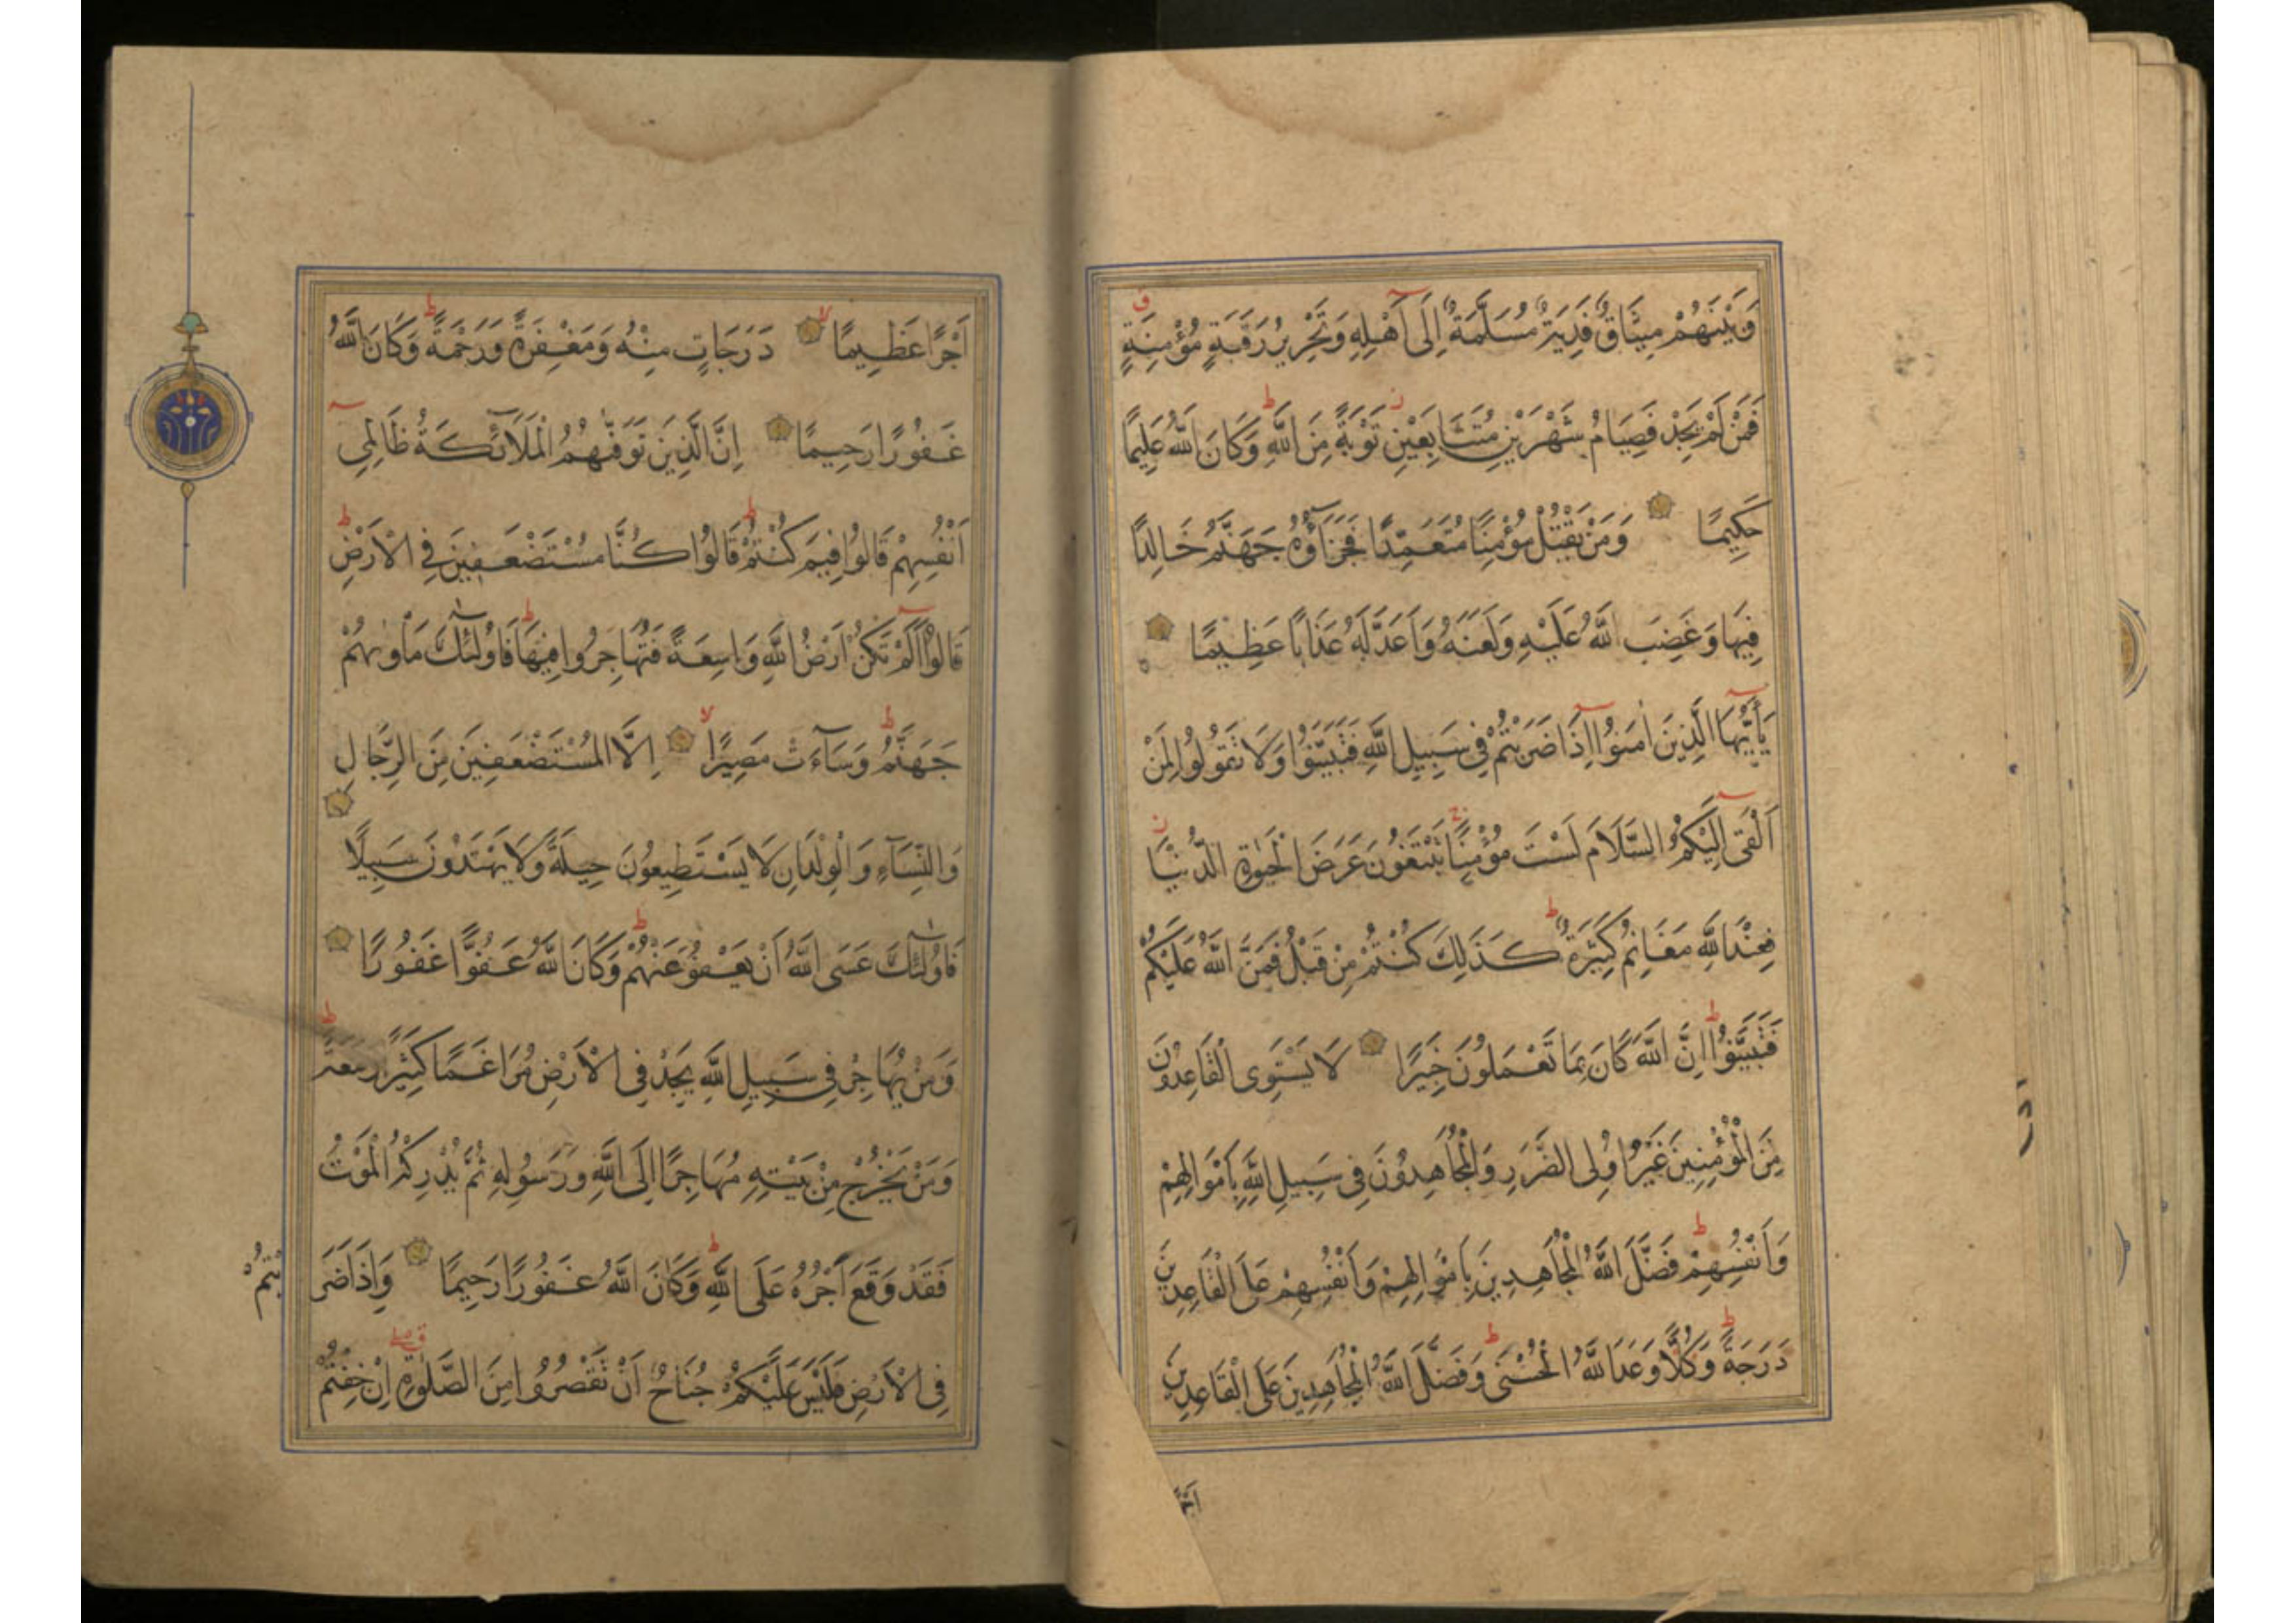 وَبَيْنَهُمْ مِيثَاقٌ فَدِيَةٌ مُسَلَّمَةٌ اِلَى اَهْلِهِ وَتَحْرِيرُ رَقَبَةٍ مُؤْمِنَةٍ
فَمَنْ لَمْ يَجِدْ فَصِيَامُ شَهْرَيْنِ مُتَتَابِعَيْنِ تَوْبَةً مِنَ اللَّهِ وَكَانَ اللَّهُ عَلِيمًا
حَكِيمًا وَمَنْ يَقْتُلْ مُؤْمِنًا مُتَعَمِّدًا فَجَزَآؤُهُ جَهَنَّمُ خَالِدًا
فِيهَا وَغَضِبَ اللَّهُ عَلَيْهِ وَلَعَنَهُ وَاَعَدَّ لَهُ عَذَابًا عَظِيمًا
يَآاَيُّهَا الَّذِينَ اٰمَنُوا اِذَا ضَرَبْتُمْ فِي سَبِيلِ اللَّهِ فَتَبَيَّنُوا وَلَا تَقُولُوا لِمَنْ
اَلْقَى اِلَيْكُمُ السَّلَامَ لَسْتَ مُؤْمِنًا تَبْتَغُونَ عَرَضَ الْحَيٰوةِ الدُّنْيَا
فَعِنْدَ اللَّهِ مَغَانِمُ كَثِيرَةٌ كَذٰلِكَ كُنْتُمْ مِنْ قَبْلُ فَمَنَّ اللَّهُ عَلَيْكُمْ
فَتَبَيَّنُوا اِنَّ اللَّهَ كَانَ بِمَا تَعْمَلُونَ خَبِيرًا لَا يَسْتَوِى الْقَاعِدُونَ
مِنَ الْمُؤْمِنِينَ غَيْرُ اُولِى الضَّرَرِ وَالْمُجَاهِدُونَ فِي سَبِيلِ اللَّهِ بِاَمْوَالِهِمْ
وَاَنْفُسِهِمْ فَضَّلَ اللَّهُ الْمُجَاهِدِينَ بِاَمْوَالِهِمْ وَاَنْفُسِهِمْ عَلَى الْقَاعِدِينَ
دَرَجَةً وَكُلًّا وَعَدَ اللَّهُ الْحُسْنَى وَفَضَّلَ اللَّهُ الْمُجَاهِدِينَ عَلَى الْقَاعِدِينَ
اَجْرًا عَظِيمًا دَرَجَاتٍ مِنْهُ وَمَغْفِرَةً وَرَحْمَةً وَكَانَ اللَّهُ
غَفُورًا رَحِيمًا اِنَّ الَّذِينَ تَوَفّٰيهُمُ الْمَلَآئِكَةُ ظَالِمِي
اَنْفُسِهِمْ قَالُوا فِيمَ كُنْتُمْ قَالُوا كُنَّا مُسْتَضْعَفِينَ فِي الْاَرْضِ
قَالُوا اَلَمْ تَكُنْ اَرْضُ اللَّهِ وَاسِعَةً فَتُهَاجِرُوا فِيهَا فَاُولٰٓئِكَ مَاْوٰيهُمْ
جَهَنَّمُ وَسَآءَتْ مَصِيرًا اِلَّا الْمُسْتَضْعَفِينَ مِنَ الرِّجَالِ
وَالنِّسَآءِ وَالْوِلْدَانِ لَا يَسْتَطِيعُونَ حِيلَةً وَلَا يَهْتَدُونَ سَبِيلًا
فَاُولٰٓئِكَ عَسَى اللَّهُ اَنْ يَعْفُوَ عَنْهُمْ وَكَانَ اللَّهُ عَفُوًّا غَفُورًا
وَمَنْ يُهَاجِرْ فِي سَبِيلِ اللَّهِ يَجِدْ فِي الْاَرْضِ مُرَاغَمًا كَثِيرًا وَسَعَةً
وَمَنْ يَخْرُجْ مِنْ بَيْتِهِ مُهَاجِرًا اِلَى اللَّهِ وَرَسُولِهِ ثُمَّ يُدْرِكْهُ الْمَوْتُ
فَقَدْ وَقَعَ اَجْرُهُ عَلَى اللَّهِ وَكَانَ اللَّهُ غَفُورًا رَحِيمًا وَاِذَا ضَرَ
بْتُمْ
فِى الْاَرْضِ فَلَيْسَ عَلَيْكُمْ جُنَاحٌ اَنْ تَقْصُرُوا مِنَ الصَّلٰوةِ اِنْ خِفْتُمْ